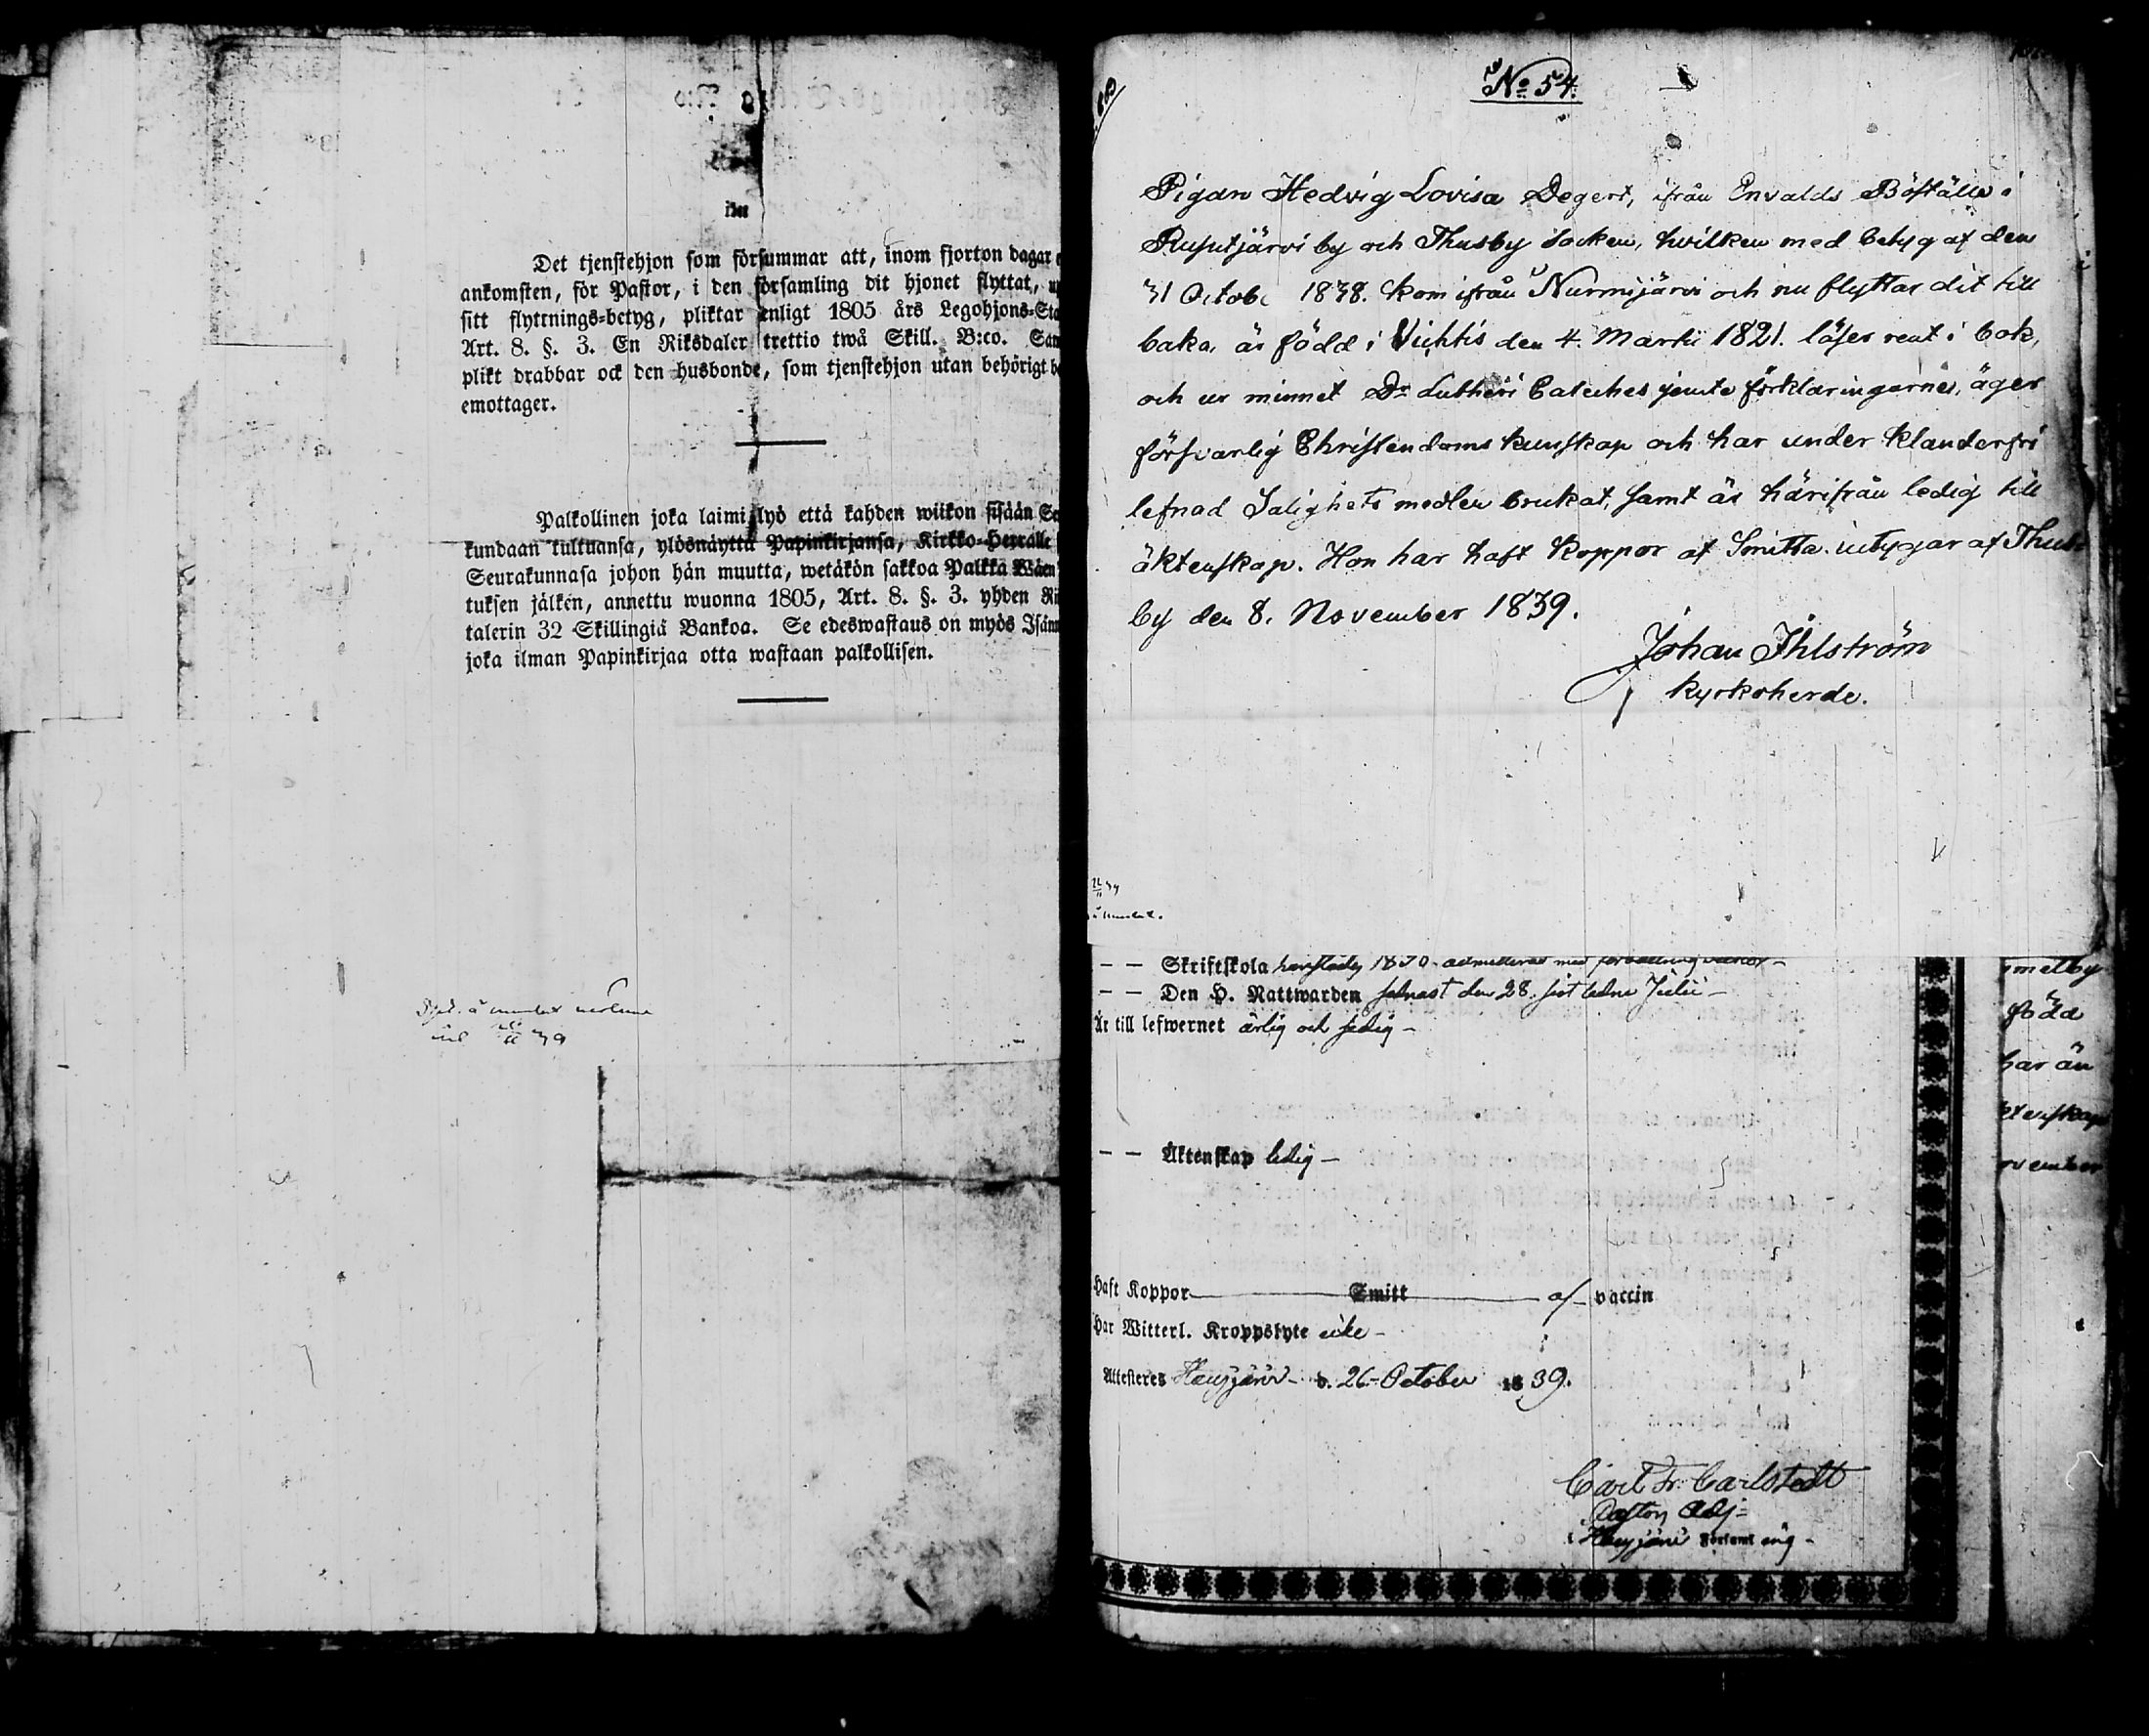 Det tjenstehjon som försummar att, inom fjorton dagar
ankomsten, för Pastor, i den församling dit hjonet flyttat,
sitt flyttnings-betyg, pliktar enligt 1805 års Legohjons-Sta
Art. 8. §. 3. En Riksdaler trettio twå Skill. B:co. Sam
plikt drabbar ock den husbonde, som tjenstehjon utan behörigt be
emottager.
Palkollinen joka laimilyö että kahden wiikon sisään Se
kundaan tultuansa, ylösnäyttä Papinkirjansa, Kirkko-Herralle
Seurakunnasa johon hän muutta, wetäkön sakkoa Palkka Wäen
tuksen jälken, annettu wuonna 1805, Art. 8. §. 3. yhden Ri
talerin 32 Skillingiä Bankoa. Se edeswastaus on myös Isänn
joka ilman Papinkirjaa otta wastaan palkollisen.
No 54.
Pigan Hedvig Lovisa Degert, ifrån Envalds Böställe i
Rusutjärvi by och Thusby Socken, hvilken med betyg af den
31 Octob. 1838. kom ifrån Nurmijärvi och nu flyttar dit till
baka, är född i Vichtis den 4. Martii 1821. läser rent i bok,
och ur minnet Dr Lutheri Cateches jemte förklaringarne, äger
försvarlig Christendoms kunskap och har under klanderfri
lefnad Salighets medlen brukat, samt är härifrån ledig till
äktenskap. Hon har haft koppor af Smitta. intygar af Thus
by den 8. November 1839.
Johan Ihlström
Kyrkoherde.
– – Skriftskola 1830. admitterad med
– – Den H. Nattwarden sednast den 28. sist ledne Julii –
Är till lefwernet ärlig och sedig –
– – Äktenskap ledig –
Haft Koppor Smitt af vaccin
Har Witterl. Kroppslyte icke –
Attesteres Hausjärvi d. 26 October 1839.
Carl Fr. Carlstedt
Pastors Adj.
i Hausjärvi Församling –
melby
född
har än
ktenskap
vember